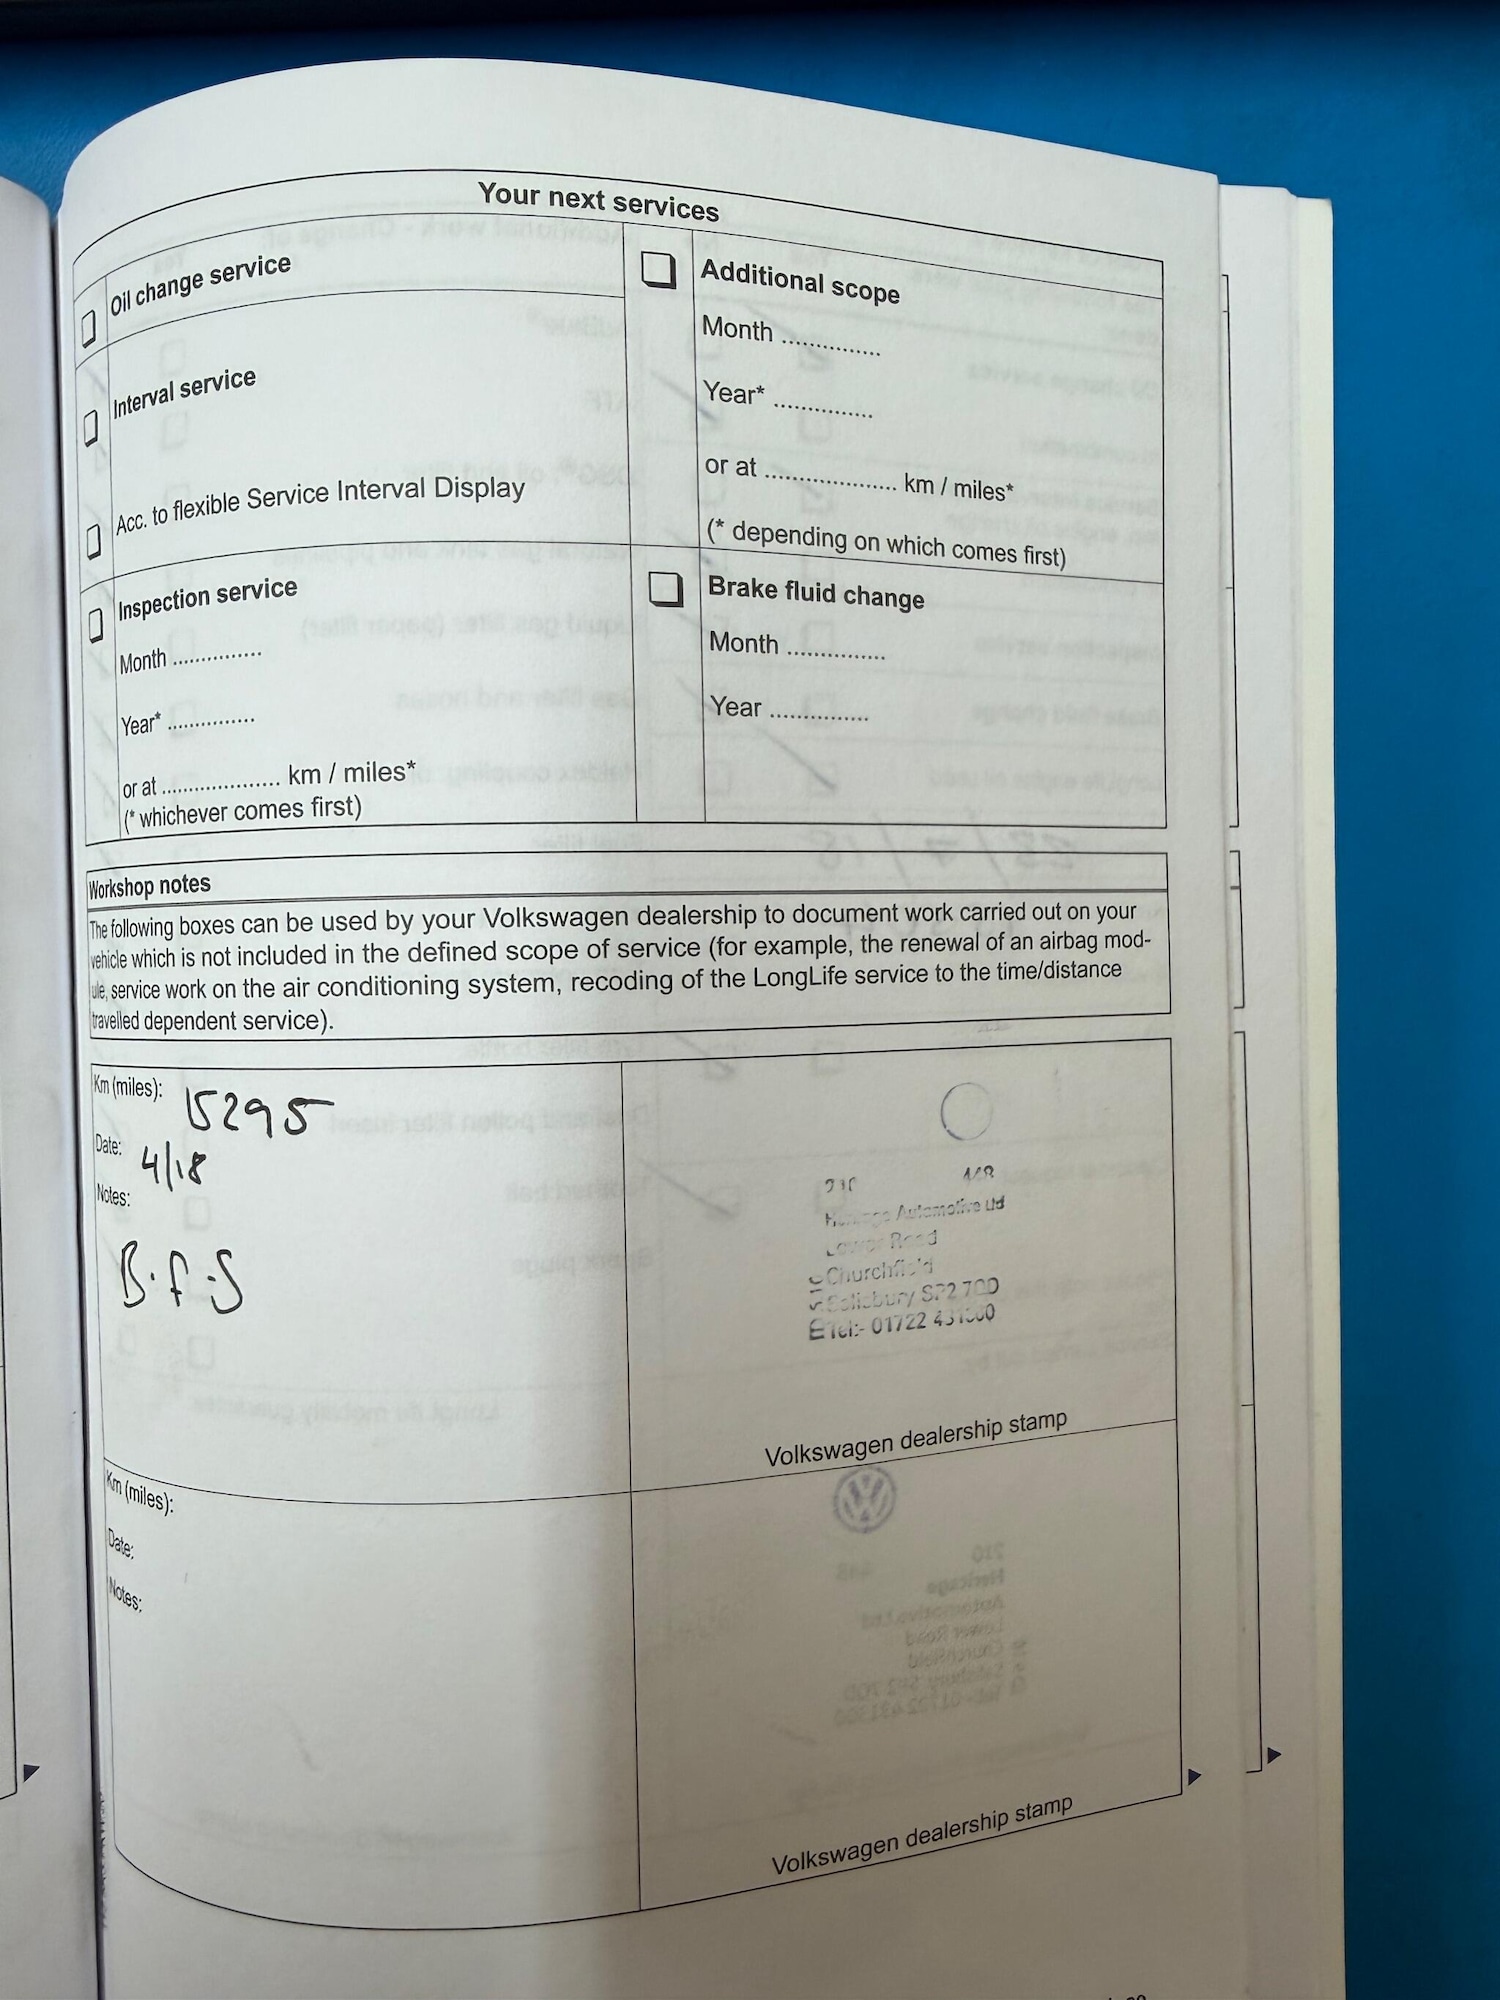 Your next services
Oil change service
Interval service
Acc. to flexible Service Interval Display
Inspection service
Month ..............
Year* ..............
or at ................... km / miles*
(* whichever comes first)
Additional scope
Month ..............
Year* ..............
or at ................... km / miles*
(* depending on which comes first)
Brake fluid change
Month ..............
Year ..............
Workshop notes
The following boxes can be used by your Volkswagen dealership to document work carried out on your
vehicle which is not included in the defined scope of service (for example, the renewal of an airbag mod-
ule, service work on the air conditioning system, recoding of the LongLife service to the time/distance
travelled dependent service).
Km (miles): 15295
Date: 4/18
Notes:
B.F.S
448
Automotive Ltd
Lower Road
Churchfield
Salisbury SP2 7QD
Tel:- 01722
Volkswagen dealership stamp
Km (miles):
Date:
Notes:
Volkswagen dealership stamp